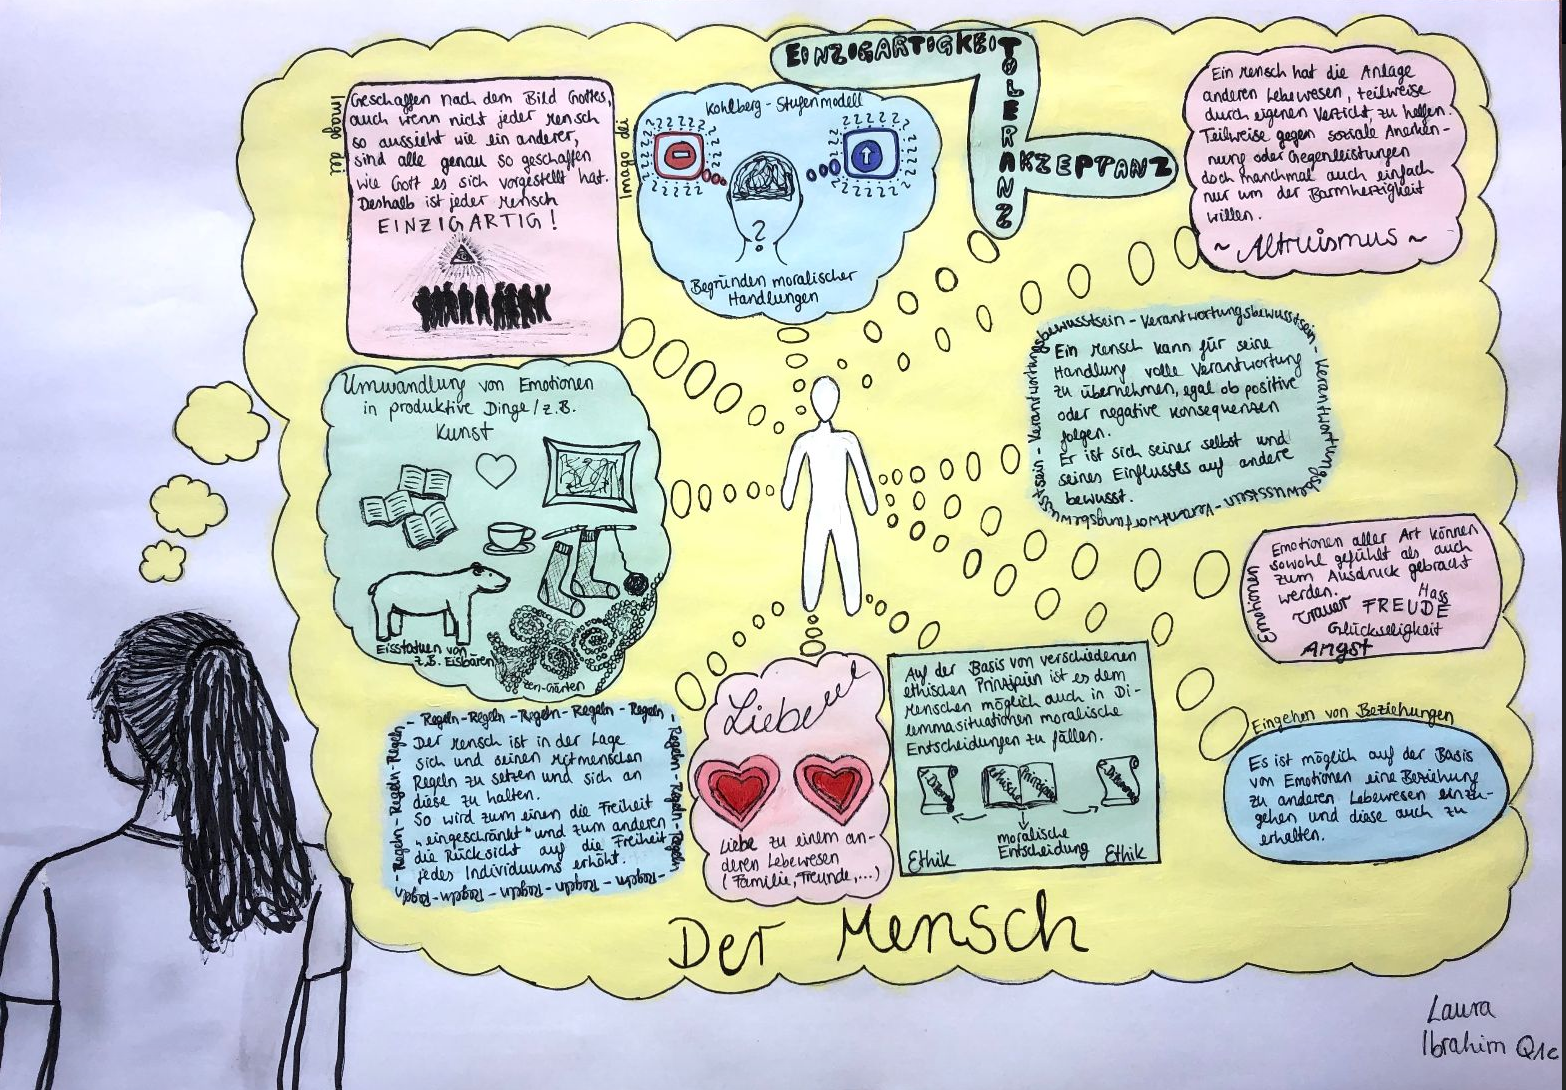 Geschaffen nach dem Bild Gottes,
auch wenn nicht jeder Mensch
so aussieht wie ein anderer,
sind alle genau so geschaffen
wie Gott es sich vorgestellt hat.
Deshalb ist jeder Mensch
EINZIGARTIG!
Imago dei
Imago dei
Kohlberg - Stufenmodell
?
Begründen moralischer
Handlungen
EINZIGARTIGKEIT
TOLERANZ
AKZEPTANZ
Ein Mensch hat die Anlage
anderen Lebewesen, teilweise
durch eigenen Verzicht, zu helfen.
Teilweise gegen soziale Anerken-
nung oder Gegenleistungen
doch manchmal auch einfach
nur um der Barmherzigkeit
willen.
~ Altruismus ~
Umwandlung von Emotionen
in produktive Dinge / z.B.
Kunst
Eisstatuen von
z.B. Eisbären
Zen-Gärten
Verantwortungsbewusstsein - Verantwortungsbewusstsein - Verantwortungsbewusstsein - Verantwortungsbewusstsein -
Ein Mensch kann für seine
Handlung volle Verantwortung
zu übernehmen, egal ob positive
oder negative Konsequenzen
folgen.
Er ist sich seiner selbst und
seines Einflusses auf andere
bewusst.
Emotionen
Emotionen aller Art können
sowohl gefühlt als auch
zum Ausdruck gebracht
werden.
Hass
Trauer FREUDE
Glückseligkeit
Angst
- Regeln - Regeln - Regeln - Regeln - Regeln -
Regeln - Regeln - Regeln
- Regeln - Regeln - Regeln - Regeln
Der Mensch ist in der Lage
sich und seinen Mitmenschen
Regeln zu setzen und sich an
diese zu halten.
So wird zum einen die Freiheit
„eingeschränkt" und zum anderen
die Rücksicht auf die Freiheit
jedes Individuums erhöht.
Regeln - Regeln - Regeln - Regeln - Regeln
Liebe
Liebe zu einem an-
deren Lebewesen
(Familie, Freunde,...)
Auf der Basis von verschiedenen
ethischen Prinzipien ist es dem
Menschen möglich auch in Di-
lemmasituationen moralische
Entscheidungen zu fällen.
Dilemma
ethische Prinzipien
Dilemma
moralische
Entscheidung
Ethik
Ethik
Eingehen von Beziehungen
Es ist möglich auf der Basis
von Emotionen eine Beziehung
zu anderen Lebewesen einzu-
gehen und diese auch zu
erhalten.
Der Mensch
Laura
Ibrahim Q1c